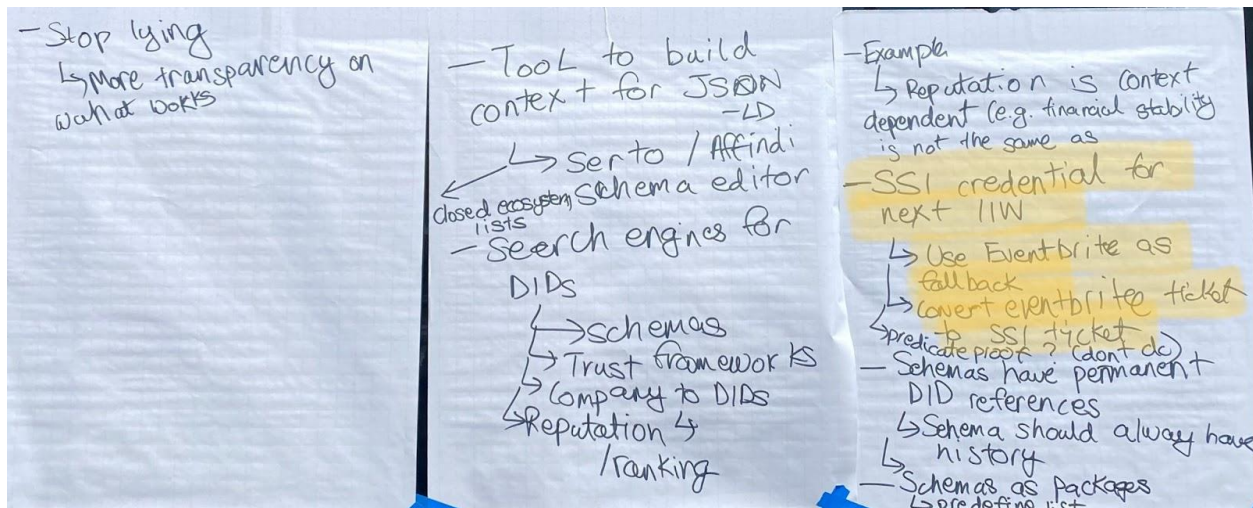 - Stop lying
↳ More transparency on
what works
- Tool to build
context for JSON
-LD
↳ Serto / Affindi
Schema editor
closed ecosystem,
lists
- Search engines for
DIDs
→ schemas
↳ Trust frameworks
↳ Company to DIDs
↳ Reputation ↳
/ranking
- Example
↳ Reputation is context
dependent (e.g. financial stability
is not the same as
- SSI credential for
next IIW
↳ Use Eventbrite as
fallback
↳ convert eventbrite ticket
to SSI ticket
↳ predicate proof? (don't do)
- Schemas have permanent
DID references
↳ Schema should alway have
history
- Schemas as packages
↳ predefine list